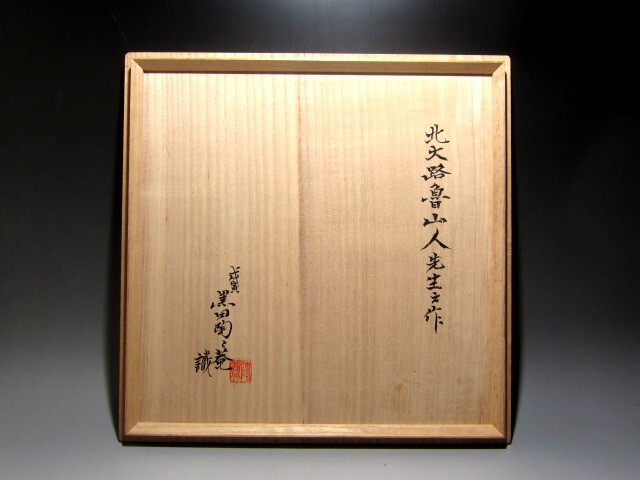 北大路魯山人先生之作
戊寅
黒田陶々菴
識